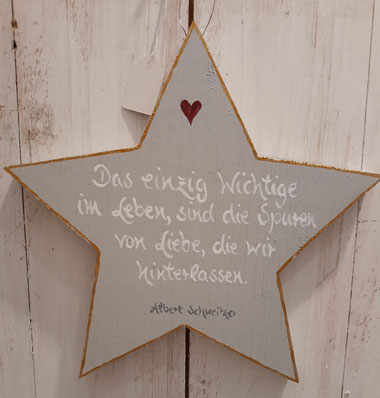 Das einzig Wichtige
im Leben, sind die Spuren
von Liebe, die wir
hinterlassen.
Albert Schweitzer